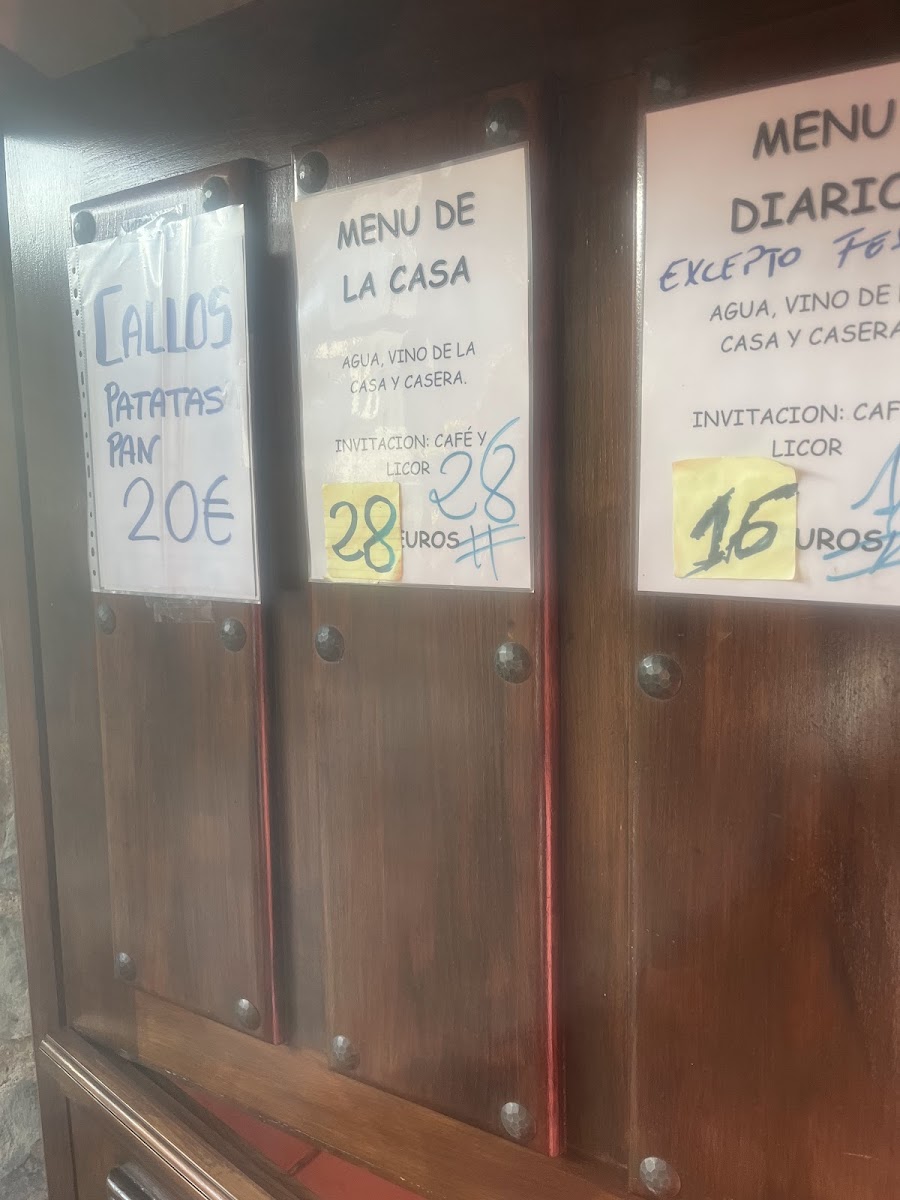 CALLOS
PATATAS
PAN
20€
MENU DE
LA CASA
AGUA, VINO DE LA
CASA Y CASERA.
INVITACION: CAFÉ Y
LICOR
28
28 EUROS #
MENU
DIARIO
EXCEPTO
AGUA, VINO DE
CASA Y CASERA
INVITACION:
LICOR
16